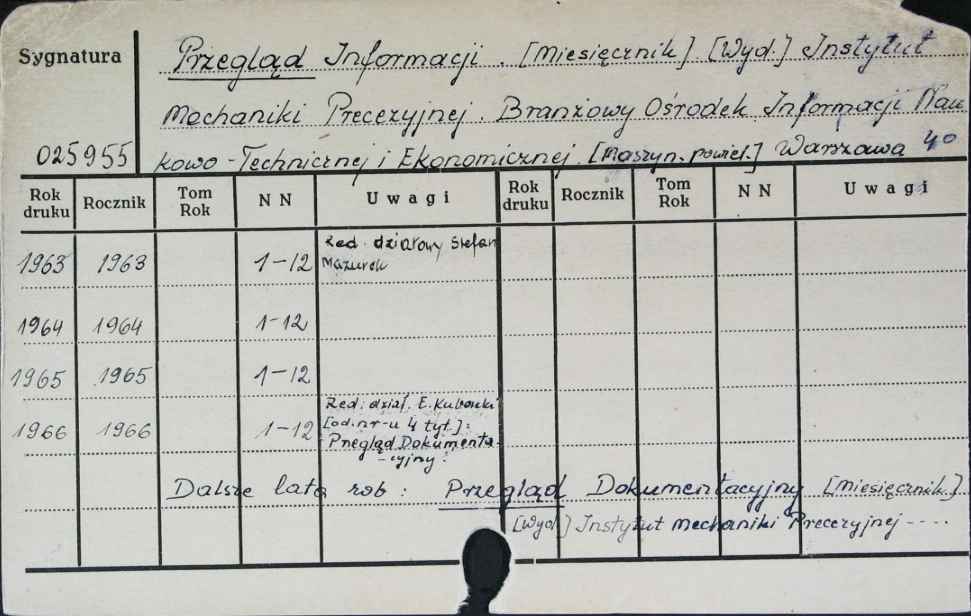 Sygnatura
Przegląd Informacji. [Miesięcznik] [Wyd.] Instytut
Mechaniki Precezyjnej. Branżowy Ośrodek Informacji Nau
025955 kowo-Technicznej i Ekonomicznej. [Maszyn. powiel.] Warszawa 40
Rok druku Rocznik Tom Rok N N Uwagi Rok druku Rocznik Tom Rok N N Uwagi
1963 1963 1-12 Red. działowy Stefan
Mazurek
1964 1964 1-12
1965 1965 1-12
Red. dział. E. Kubowki
1966 1966 1-12 [od. nr-u 4 tyt.]:
Przegląd Dokumenta-
-cyjny.
Dalsze lata zob: Przegląd Dokumentacyjny [miesięcznik.]
[Wyd.] Instytut Mechaniki Precezyjnej ----